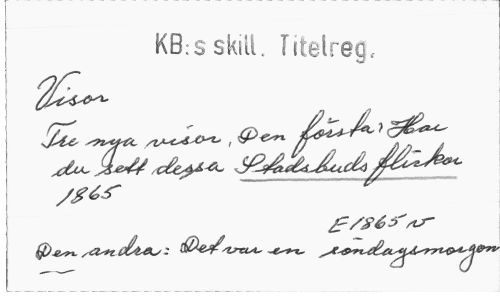 KB:s skill. Titelreg.
Visor
Tre nya visor. Den första: Har
du sett dessa Stadsbuds flickor
1865
E 1865 v
Den andra: Det var en söndagsmorgon